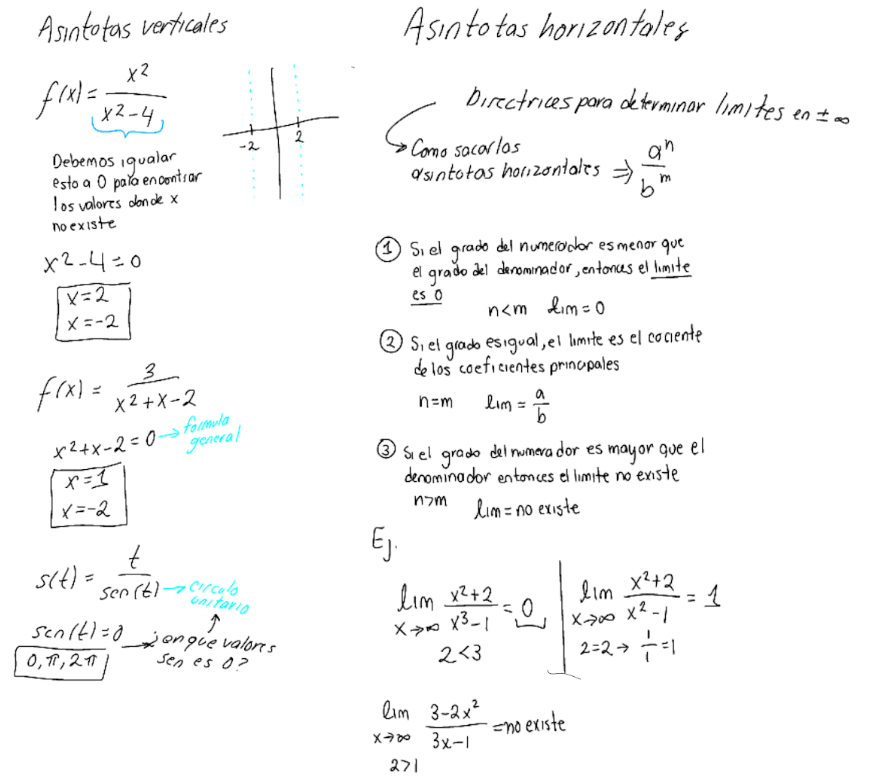 Asintotas verticales
f(x) = x²/(x²-4)
-2 2
Debemos igualar
esto a 0 para encontrar
los valores donde x
no existe
x²-4=0
x=2
x=-2
f(x) = 3/(x²+x-2)
x²+x-2=0 → formula
general
x=1
x=-2
s(t) = t/sen(t) → circulo
unitario
sen(t)=0 → ¿en que valores
sen es 0?
0, π, 2π
Asintotas horizontales
Directrices para determinar limites en ±∞
Como sacar las
asintotas horizontales ⇒ aⁿ/bᵐ
① Si el grado del numerador es menor que
el grado del denominador, entonces el limite
es 0
n<m lim=0
② Si el grado es igual, el limite es el cociente
de los coeficientes principales
n=m lim = a/b
③ Si el grado del numerador es mayor que el
denominador entonces el limite no existe
n>m lim = no existe
Ej.
lim x→∞ (x²+2)/(x³-1) = 0
2<3
lim x→∞ (x²+2)/(x²-1) = 1
2=2 → 1/1 =1
lim x→∞ (3-2x²)/(3x-1) = no existe
2>1